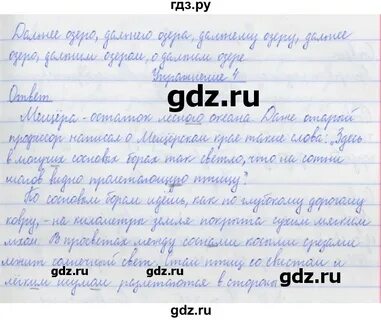 гдз.ру
Дальнее озеро, дальнего озера, дальнему озеру, дальнее
озеро, дальним озером, о дальнем озере
Упражнение 4
Ответ
Мещёра - остаток лесного океана. Даже старый
профессор написал о Мещёрском крае такие слова: "Здесь
в могучих сосновых борах так светло, что на сотни
шагов видно пролетающую птицу".
По сосновым борам идёшь, как по глубокому дорогому
ковру, - на километры земля покрыта сухим мягким
мхом. В просветах между соснами косыми срезами
лежит солнечный свет. Стаи птиц со свистом и
лёгким шумом разлетаются в стороны
gdz.ru gdz.ru
gdz.ru gdz.ru
gdz.ru gdz.ru